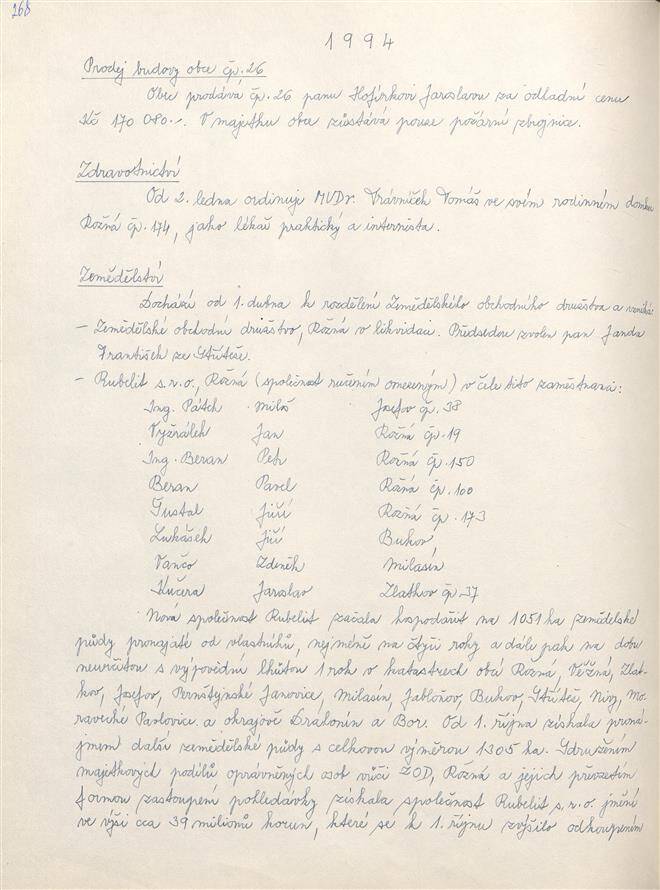 168
1994
Prodej budovy obce čp. 26
Obec prodává čp. 26 panu Hofírkovi Jaroslavu za odhadní cenu
Kč 170 080.-. V majetku obce zůstává pouze požární zbrojnice.
Zdravotnictví
Od 2. ledna ordinuje MUDr. Trávníček Tomáš ve svém rodinném domku
Rožná čp. 174, jako lékař praktický a internista.
Zemědělství
Dochází od 1. dubna k rozdělení Zemědělského obchodního družstva a vzniká:
- Zemědělské obchodní družstvo, Rožná v likvidaci. Předsedou zvolen pan Janda
František ze Střítěže.
- Rubelit s.r.o., Rožná (společnost ručením omezeným) v čele tito zaměstnanci:
Ing. Pátek Miloš Josefov čp. 38
Vyžrálek Jan Rožná čp. 19
Ing. Beran Petr Rožná čp. 150
Beran Pavel Rožná čp. 100
Gustal Jiří Rožná čp. 173
Lukášek Jiří Bukov
Vančo Zdeněk Milasín
Kučera Jaroslav Zlatkov čp. 37
Nová společnost Rubelit začala hospodařit na 1051 ha zemědělské
půdy pronajaté od vlastníků, nejméně na čtyři roky a dále pak na dobu
neurčitou s výpovědní lhůtou 1 rok v katastrech obcí Rožná, Věžná, Zlat-
kov, Josefov, Pernštýnské Janovice, Milasín, Jabloňov, Bukov, Střítěž, Nivy, Mo-
ravecké Pavlovice a okrajově Drahonín a Bor. Od 1. října získala proná-
jmem další zemědělské půdy s celkovou výměrou 1305 ha. Sdružením
majetkových podílů oprávněných osob vůči ZOD, Rožná a jejich převzetím
formou zastoupení pohledávky získala společnost Rubelit s.r.o. jmění
ve výši cca 39 milionů korun, které se k 1. říjnu zvýšilo odkoupením